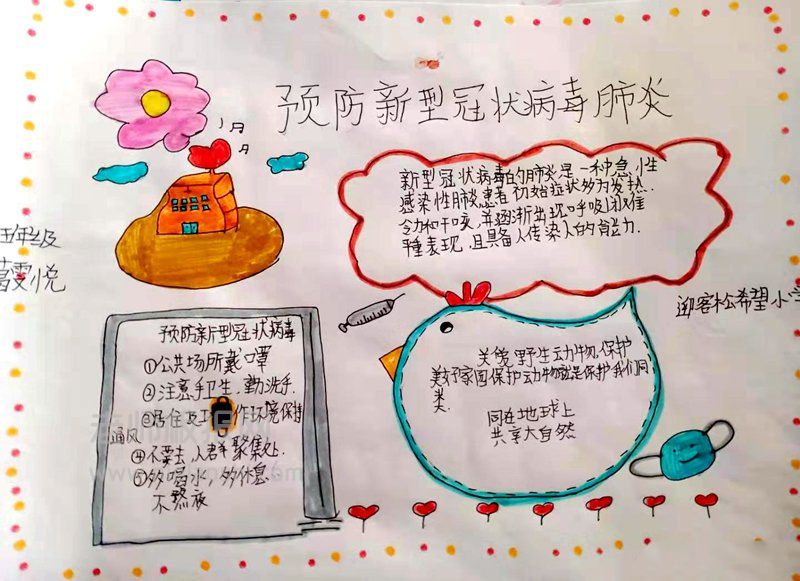 预防新型冠状病毒肺炎
五年级
新型冠状病毒的肺炎是一种急性
感染性肺炎患者初始症状多为发热.
和干咳,并逐渐出现呼吸困难
表现,且具备人传染人的能力.
迎客松希望小学
预防新型冠状病毒
①公共场所戴口罩
②注意手卫生,勤洗手.
③居住 作环境保持
通风
④不要去人群聚集处.
⑤多喝水,多休息
不熬夜
关爱野生动物,保护
美好家园保护动物就是保护我们同
类.
同在地球上
共享大自然